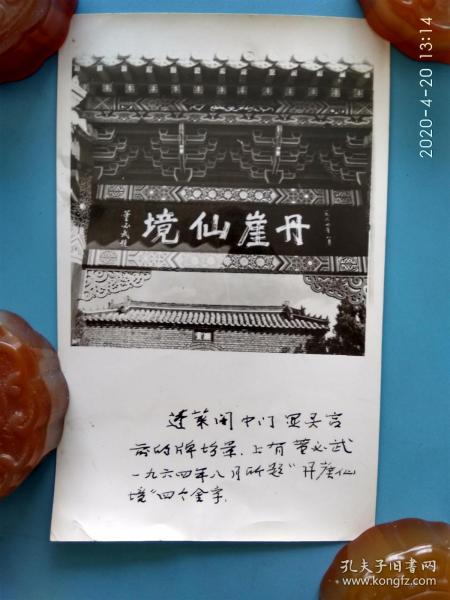 一九六四年八月
丹崖仙境
董必武题
蓬莱阁中门宫
前的牌坊景.上有董必武
一九六四年八月所题“丹崖仙
境”四个金字.
2020-4-20 13:14
孔夫子旧书网
www.kongfz.com